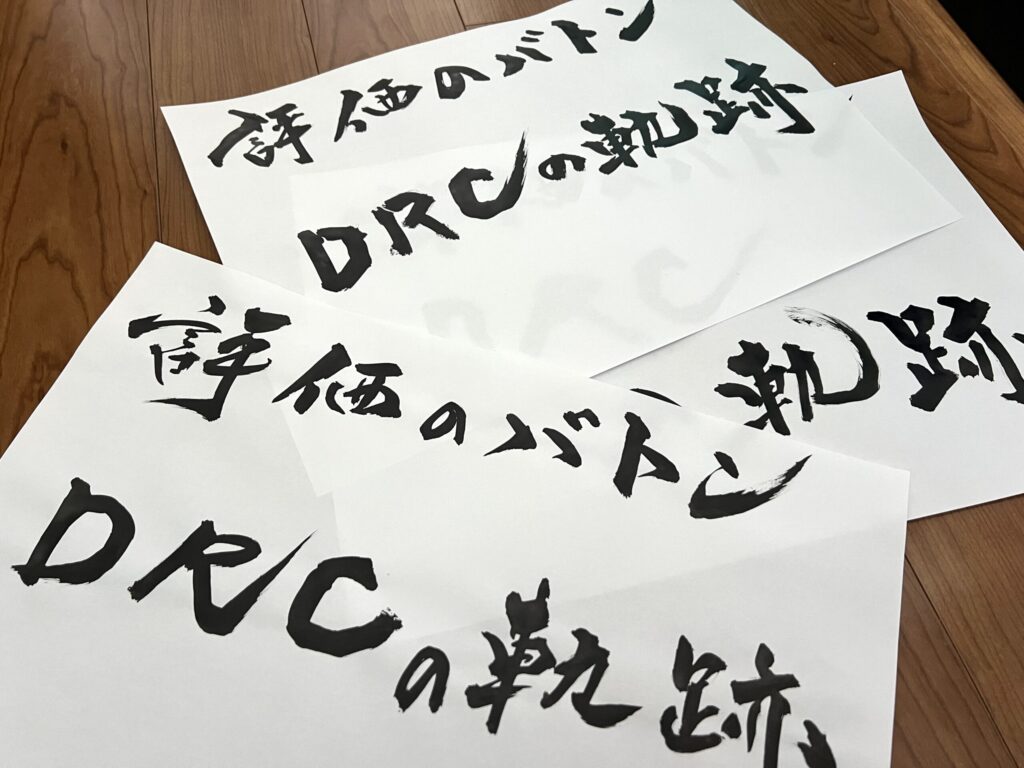 評価のバトン
DRCの軌跡
軌跡
評価のバトン
DRCの軌跡